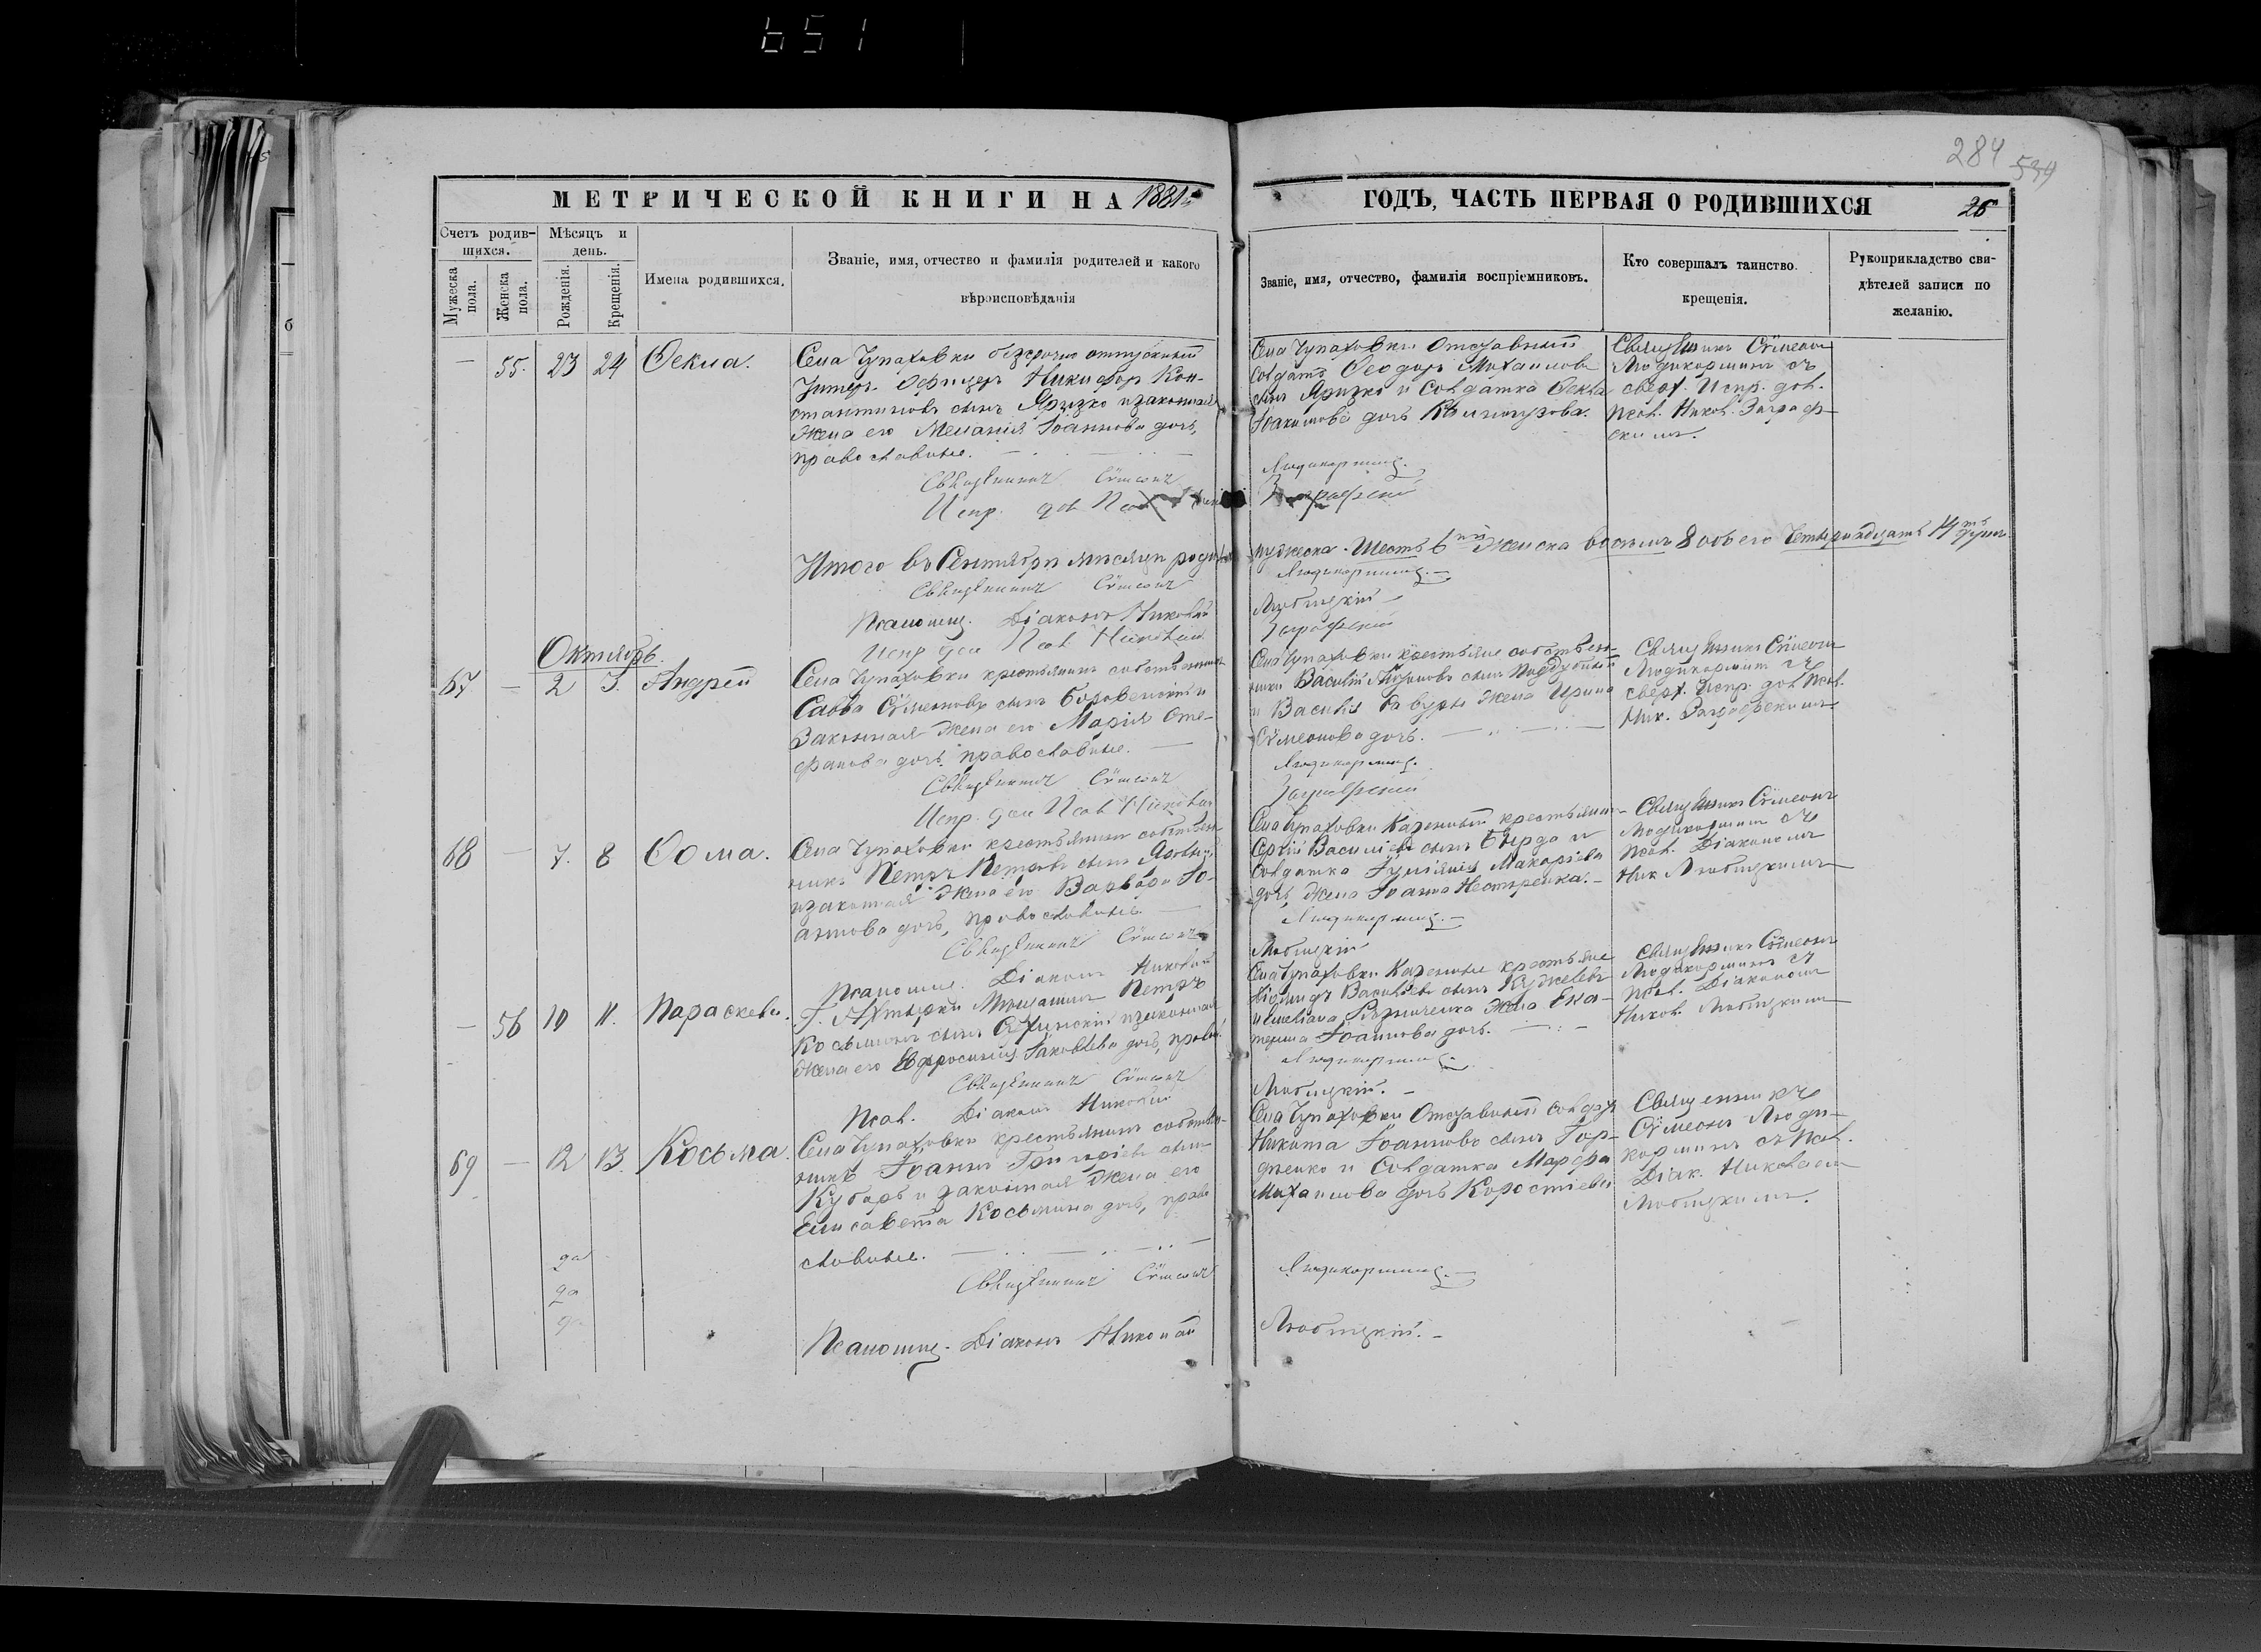 651
284 539
МЕТРИЧЕСКОЙ КНИГИ НА 1881й
ГОДЪ, ЧАСТЬ ПЕРВАЯ О РОДИВШИХСЯ
26
Счетъ родив-
шихся.
Мѣсяцъ и
день.
Мужеска
пола.
Женска
пола.
Рожденія.
Крещенія.
Имена родившихся.
Званіе, имя, отчество и фамилія родителей и какого
вѣроисповѣданія
Званіе, имя, отчество, фамилія воспріемниковъ.
Кто совершалъ таинство
крещенія.
Рукоприкладство сви-
дѣтелей записи по
желанію.
— 55. 23 24 Ѳекла.
Села Чупаховки безсрочно отпускный
Унтеръ-Офицеръ Никифор Кон-
стантиновъ сынъ Яризко и законная
жена его Меланія Іоаннова дочь,
православные.
Священникъ Сѵмеонъ
Испр. дол.
Села Чупаховки Отставный
Солдатъ Ѳеодоръ Михаиловъ
сынъ Яризко и Солдатка Ѳекла
Іоакимова дочь
Людикорминъ.
Заграфскій
Священникъ Сѵмеонъ
Людикорминъ съ
сверх. Испр. дол.
Псал. Никол. Заграф-
скимъ.
Итого въ Сентябрѣ мѣсяцѣ родилось
мужеска-Шесть 6ть женска восемь 8 обоего Четырнадцать 14ть душъ
Священникъ Сѵмеонъ
Людикорминъ.
Псаломщ. Діаконъ Николай
Любицкій
Испр дол Псал Николай
Заграфскій
Октябрь.
67 — 2 3. Андрей
Села Чупаховки крестьянинъ собственникъ
Савва Сѵмеоновъ сынъ Боровенскій и
Законная жена его Марія Сте-
фанова дочь, православные.
Священникъ Сѵмеонъ
Испр. дол Псал Николай
Села Чупаховки крестьяне собствен-
ники Василій сынъ Поддубный
и Василія жена Ирина
Сѵмеонова дочь.
Людикорминъ.
Заграфскій
Священникъ Сѵмеонъ
Людикорминъ съ
сверх. Испр. дол Псал.
Ник. Заграфскимъ
68 — 7. 8 Ѳома.
Села Чупаховки крестьянинъ собствен-
никъ Петръ Петровъ сынъ Яровый
и законная жена его Варвара Іо-
аннова дочь, православные.
Священникъ Сѵмеонъ
Псаломщ. Діаконъ Николай
Села Чупаховки Казенный крестьянин-
Сергій Василіевъ сынъ Бырда и
Солдатка Іуліанія Макаріева
дочь, жена Іоанна Нестеренка.
Людикорминъ.
Любицкій
Священникъ Сѵмеонъ
Людикорминъ съ
Псал. Діакономъ
Ник Любицкимъ
— 56 10 11. Параскева.
Г. Ахтырки Мѣщанинъ Петръ
Косьминъ сынъ и законная
жена его Евфросинія Іаковлева дочь, правосл.
Священникъ Сѵмеонъ
Псал. Діаконъ Николай
Села Чупаховки Казенные крестьяне
Діомидъ Василіевъ сынъ
и Емеліана жена Ека-
терина Іоаннова дочь.
Людикорминъ.
Любицкій.
Священникъ Сѵмеонъ
Людикорминъ съ
Псал. Діакономъ
Никол. Любицкимъ
69 — 12 13. Косьма.
Села Чупаховки крестьянинъ собствен-
никъ Іоаннъ Григоріевъ сынъ
Кубарь и законная жена его
Елисавета Косьмина дочь, право
славные.
Священникъ Сѵмеонъ
Псаломщ. Діаконъ Николай
Села Чупаховки Отставный Солдатъ
Никита Іоанновъ сынъ Гор-
дченко и Солдатка Марфа
Михаилова дочь
Людикорминъ.
Любицкій.
Священникъ
Сѵмеонъ Люди-
корминъ съ Псал.
Діак. Николаемъ
Любицкимъ.